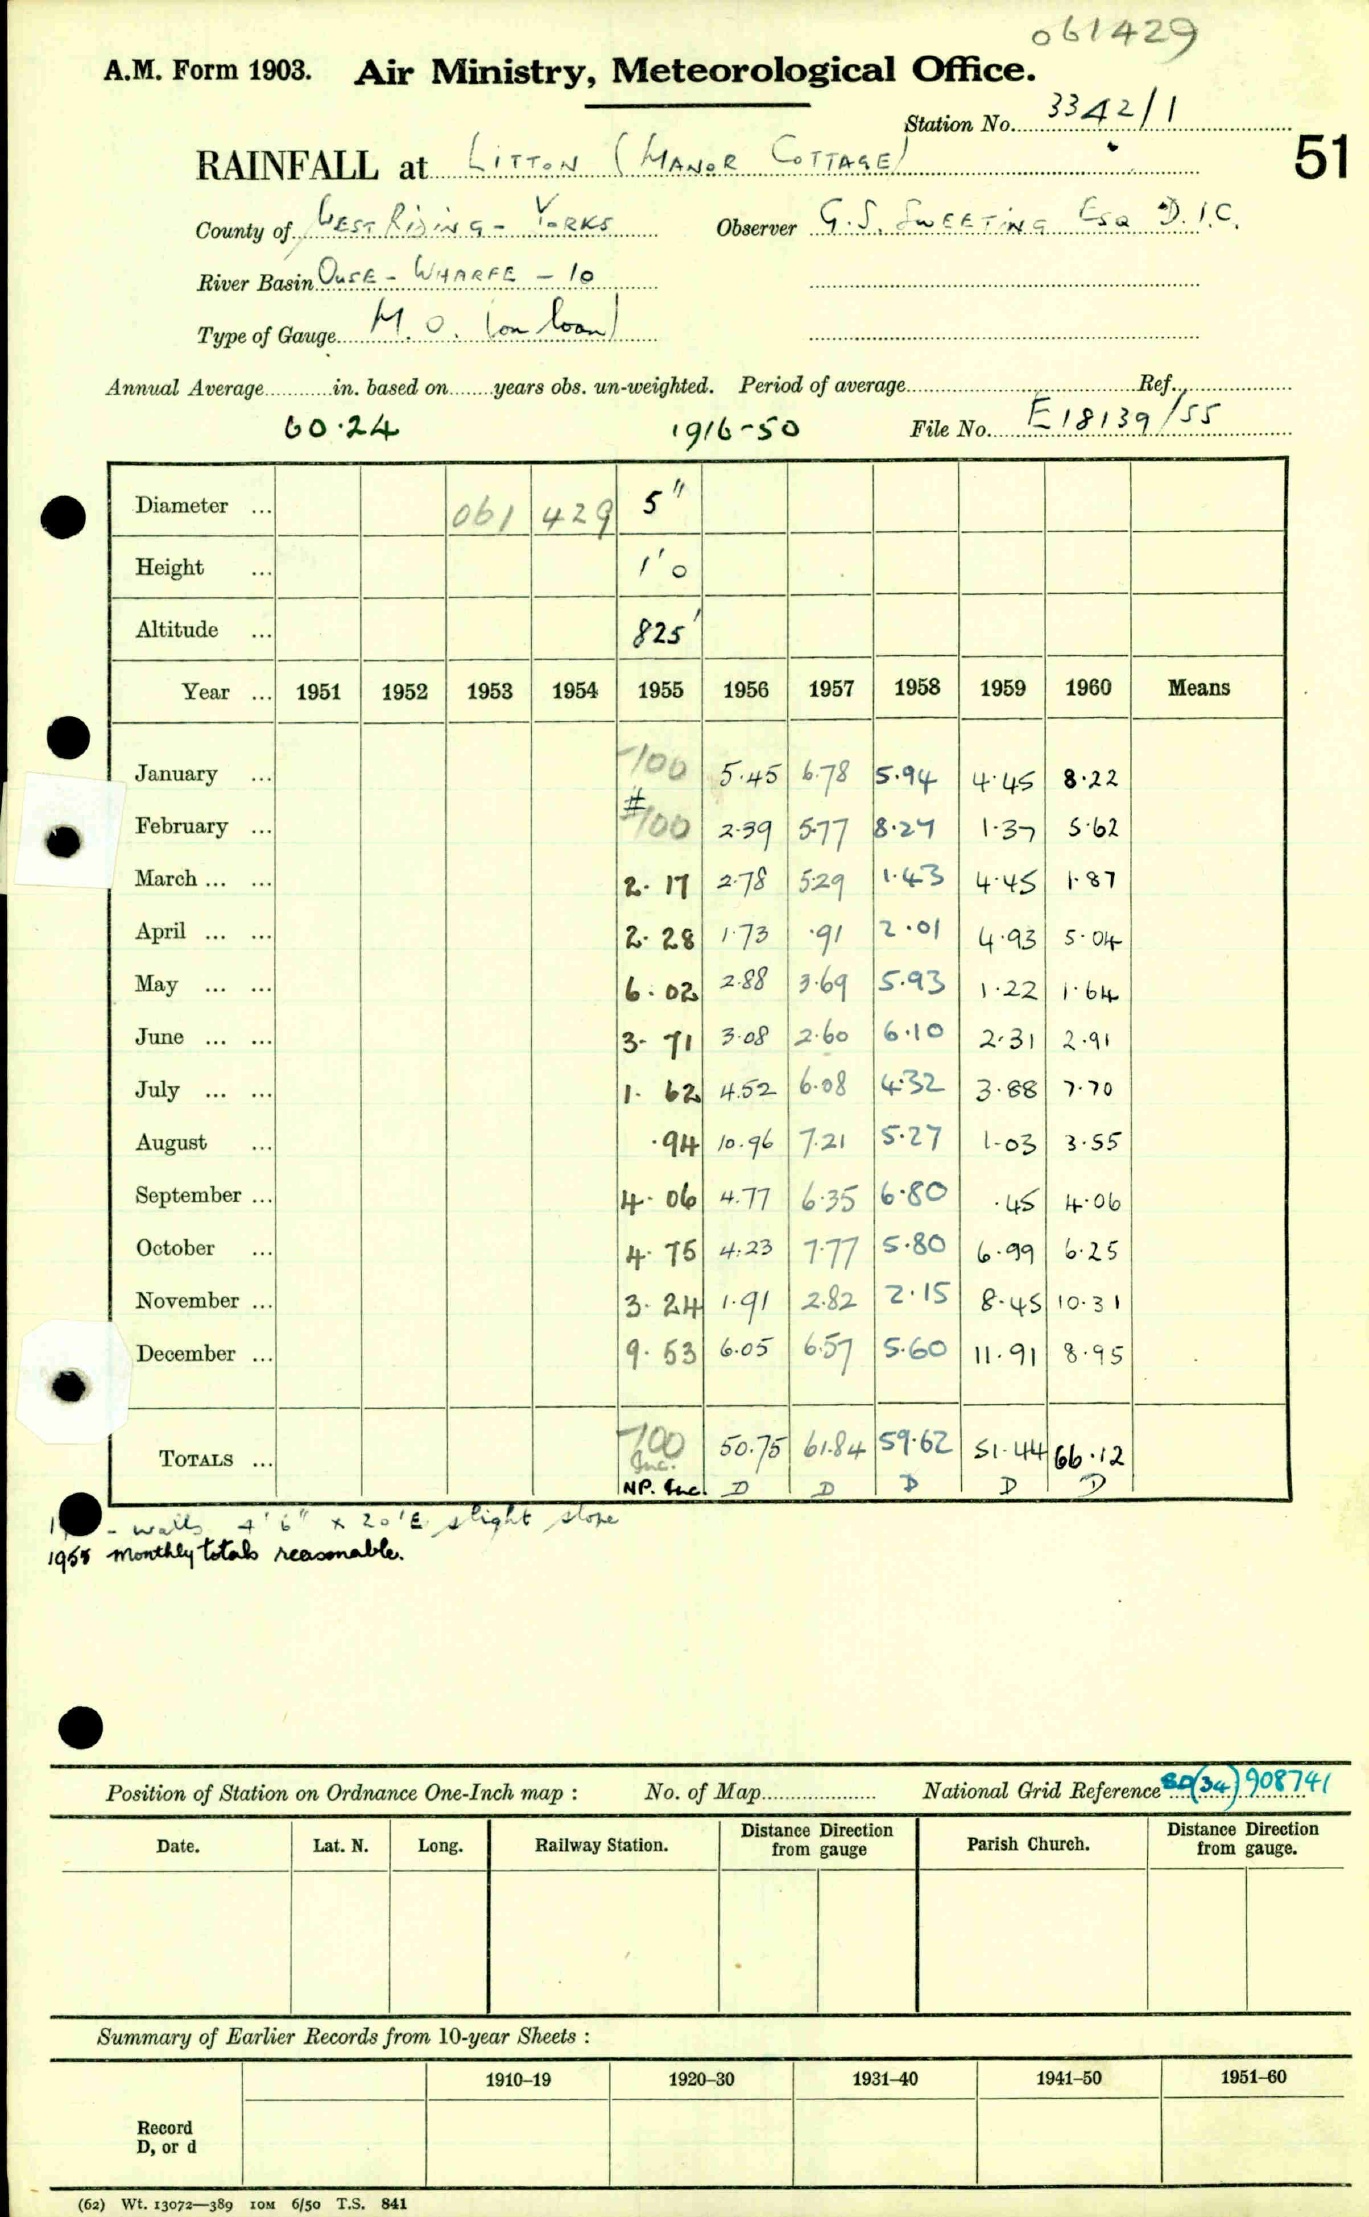 061429
A.M. Form 1903. Air Ministry, Meteorological Office.
Station No. 3342/1
51
RAINFALL at LITTON (MANOR COTTAGE)
County of WEST RIDING - YORKS Observer G.S. SWEETING ESQ D.I.C.
River Basin OUSE - WHARFE - 10
Type of Gauge M.O. (on loan)
Annual Average in. based on years obs. un-weighted. Period of average Ref.
60.24 1916-50 File No. E18139/55
Diameter ... 061 429 5"
Height ... 1'0
Altitude ... 825'
Year ... 1951 1952 1953 1954 1955 1956 1957 1958 1959 1960 Means
January ... -100 5.45 6.78 5.94 4.45 8.22
February ... # -100 2.39 5.77 8.27 1.37 5.62
March ... ... 2.17 2.78 5.29 1.43 4.45 1.87
April ... ... 2.28 1.73 .91 2.01 4.93 5.04
May ... ... 6.02 2.88 3.69 5.93 1.22 1.64
June ... ... 3.71 3.08 2.60 6.10 2.31 2.91
July ... ... 1.62 4.52 6.08 4.32 3.88 7.70
August ... .94 10.96 7.21 5.27 1.03 3.55
September ... 4.06 4.77 6.35 6.80 .45 4.06
October ... 4.75 4.23 7.77 5.80 6.99 6.25
November ... 3.24 1.91 2.82 2.15 8.45 10.31
December ... 9.53 6.05 6.57 5.60 11.91 8.95
TOTALS ... -100 50.75 61.84 59.62 51.44 66.12
Inc.
NP. Inc. D D D D D
- walls 4'6" x 20'E slight slope
1955 monthly totals reasonable.
Position of Station on Ordnance One-Inch map : No. of Map National Grid Reference SD(34)908741
Date. Lat. N. Long. Railway Station. Distance Direction from gauge Parish Church. Distance Direction from gauge.
Summary of Earlier Records from 10-year Sheets :
1910–19 1920–30 1931–40 1941–50 1951–60
Record
D, or d
(62) Wt. 13072—389 10M 6/50 T.S. 841